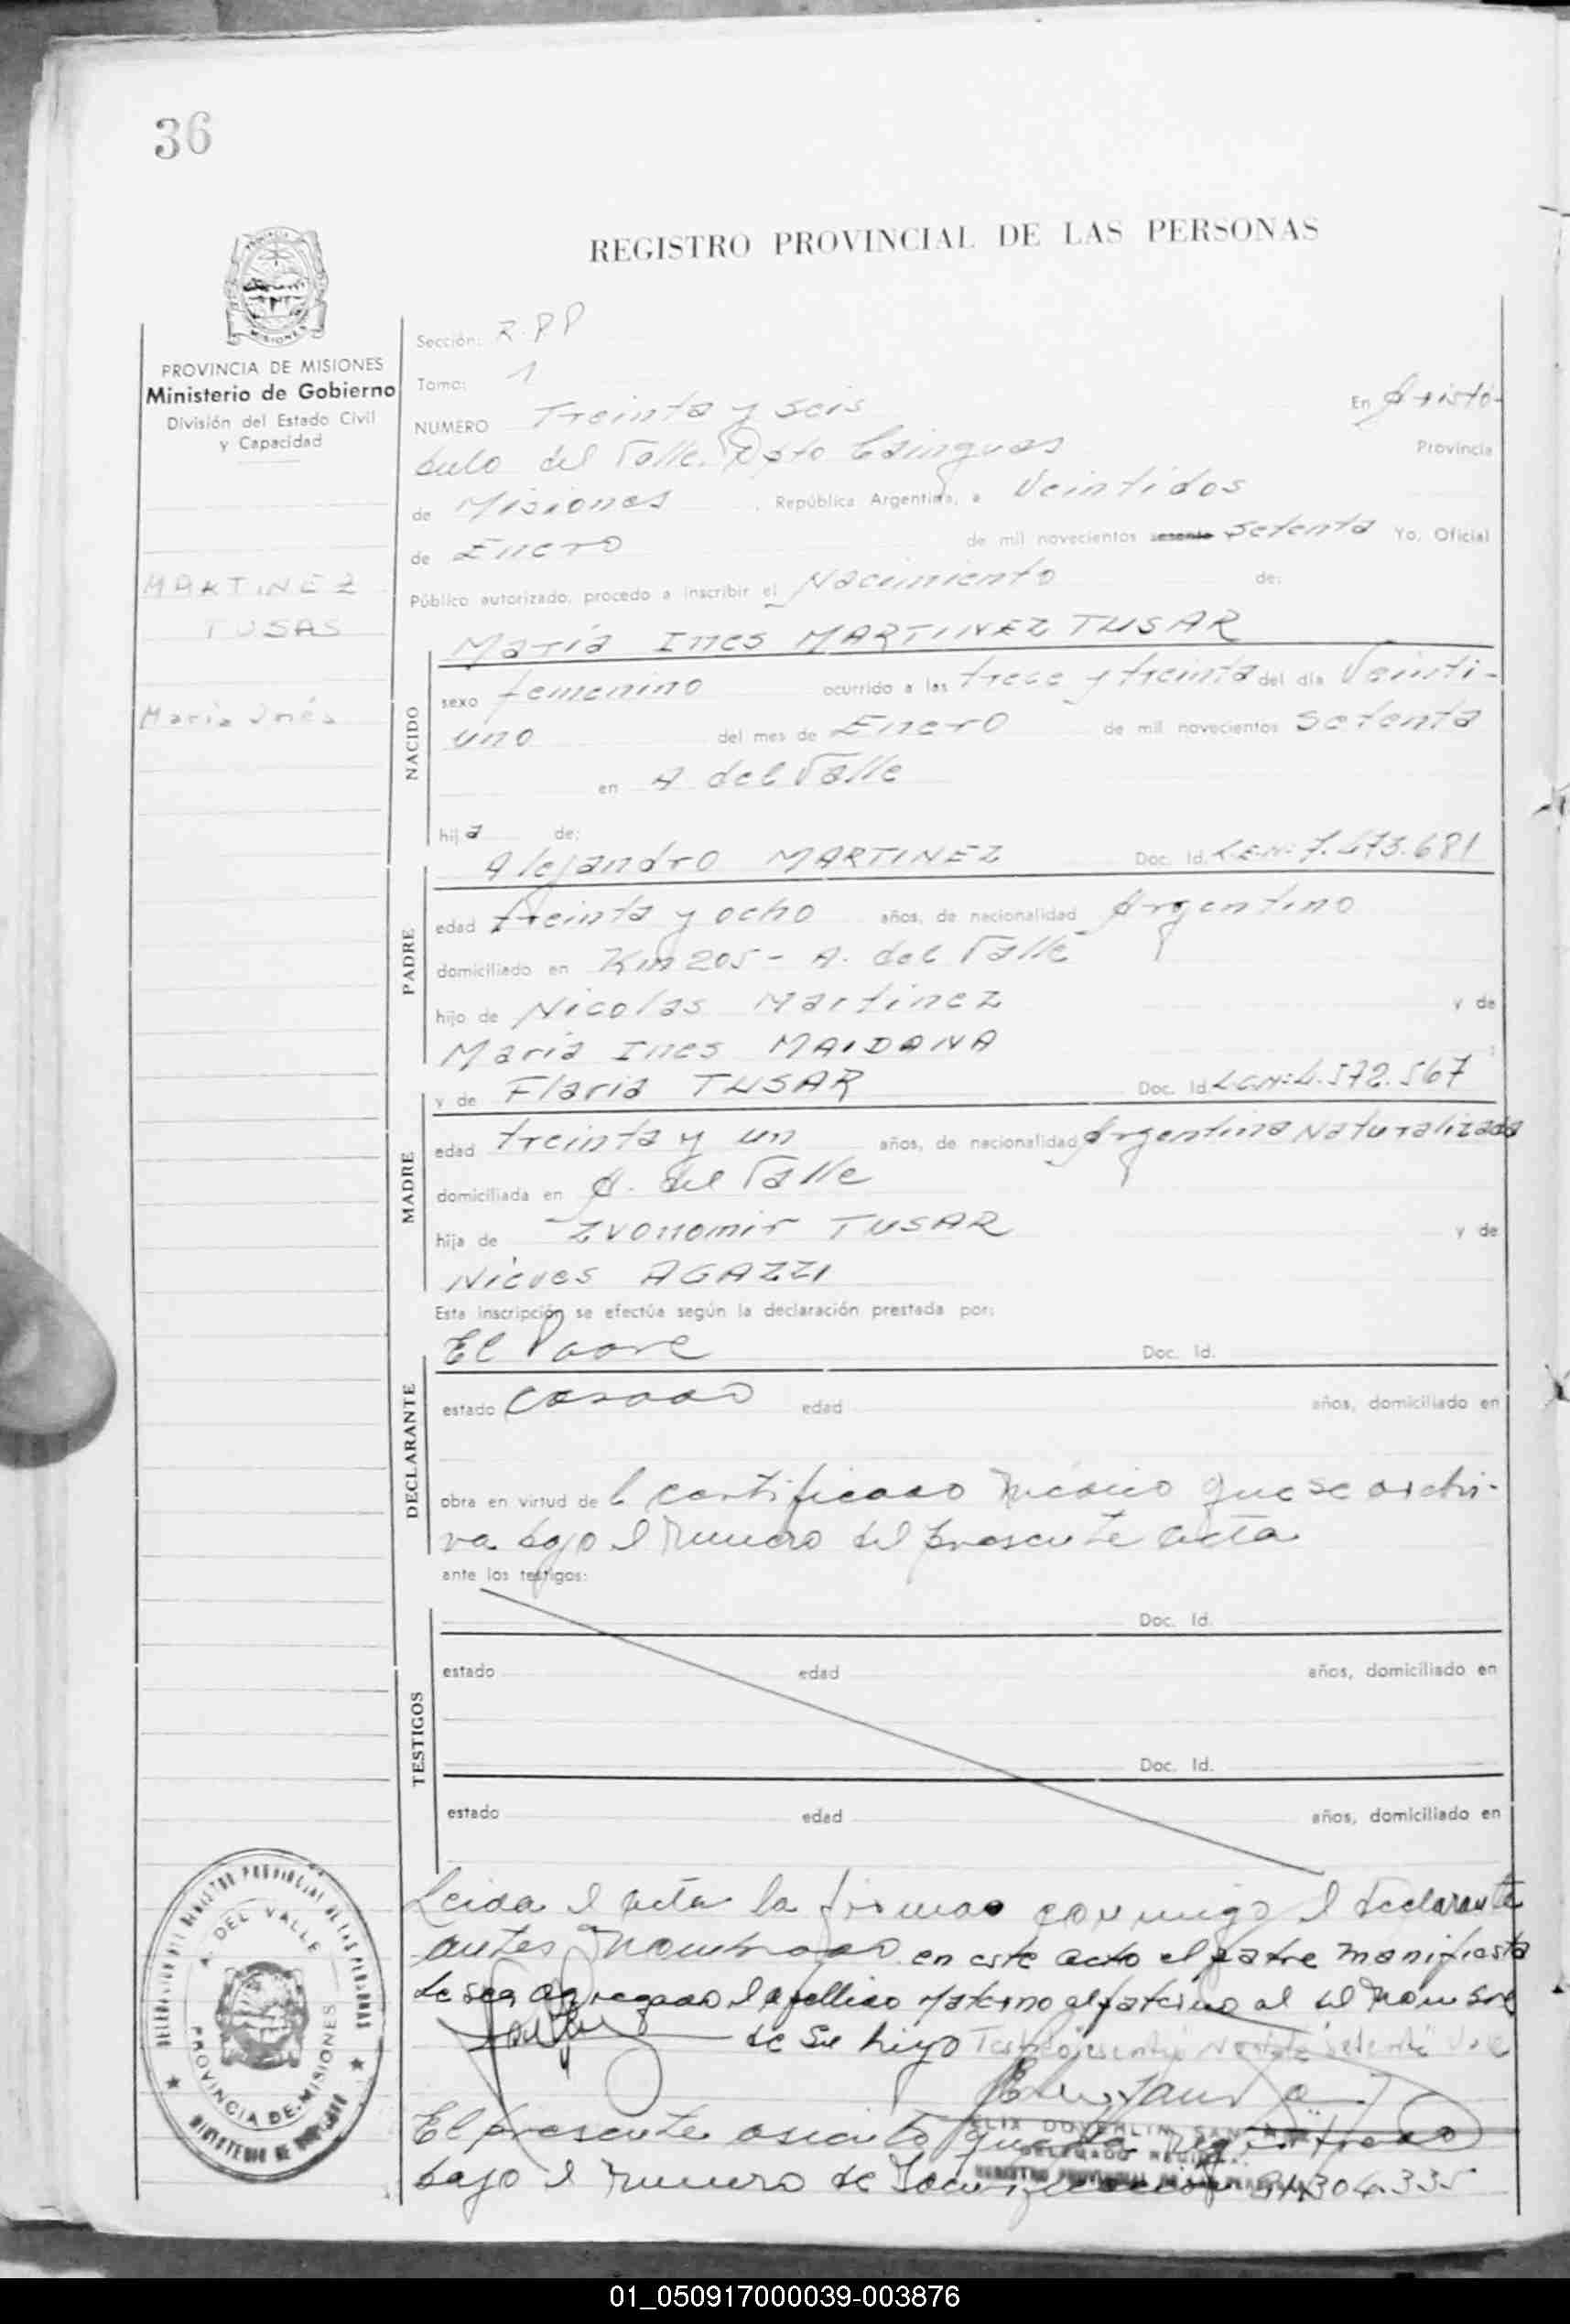 36
REGISTRO PROVINCIAL DE LAS PERSONAS
PROVINCIA DE MISIONES
Ministerio de Gobierno
División del Estado Civil
y Capacidad
MARTINEZ
TUSAS
María Inés
Sección: R.P.P
Tomo: 1
NUMERO Treinta y seis En Aristó-
bulo del Valle. Dpto Cainguas Provincia
de Misiones, República Argentina, a Veintidos
de Enero de mil novecientos sesenta setenta Yo, Oficial
Público autorizado, procedo a inscribir el Nacimiento de:
María Ines MARTINEZ TUSAR
NACIDO
sexo femenino ocurrido a las trece y treinta del día Veinti-
uno del mes de Enero de mil novecientos setenta
en A del Valle
hija de:
Alejandro MARTINEZ Doc. Id. L.E.N: 7.473.681
PADRE
edad treinta y ocho años, de nacionalidad Argentino
domiciliado en Km 205 - A. del Valle
hijo de Nicolas Martinez y de
Maria Ines MAIDANA
y de Flaria TUSAR Doc. Id. L.C.N: 4.572.567
MADRE
edad treinta y un años, de nacionalidad Argentina Naturalizada
domiciliada en A. del Valle
hija de Zvonomir TUSAR y de
Nieves AGAZZI
Esta inscripción se efectúa según la declaración prestada por:
El Padre Doc. Id.
DECLARANTE
estado casado edad años, domiciliado en
obra en virtud de l certificado médico que se archi-
va bajo el numero del presente acta
ante los testigos:
TESTIGOS
Doc. Id.
estado edad años, domiciliado en
Doc. Id.
estado edad años, domiciliado en
Leida el acta la firman conmigo el declarante
antes nombrado en este acto el padre manifiesta
de sea agregado el apellido materno al paterno al del nombre
de su hijo
El presente asiento queda registrado
bajo el numero de
REGISTRO PROVINCIAL DE LAS PERSONAS
A. DEL VALLE
PROVINCIA DE MISIONES
01_050917000039-003876